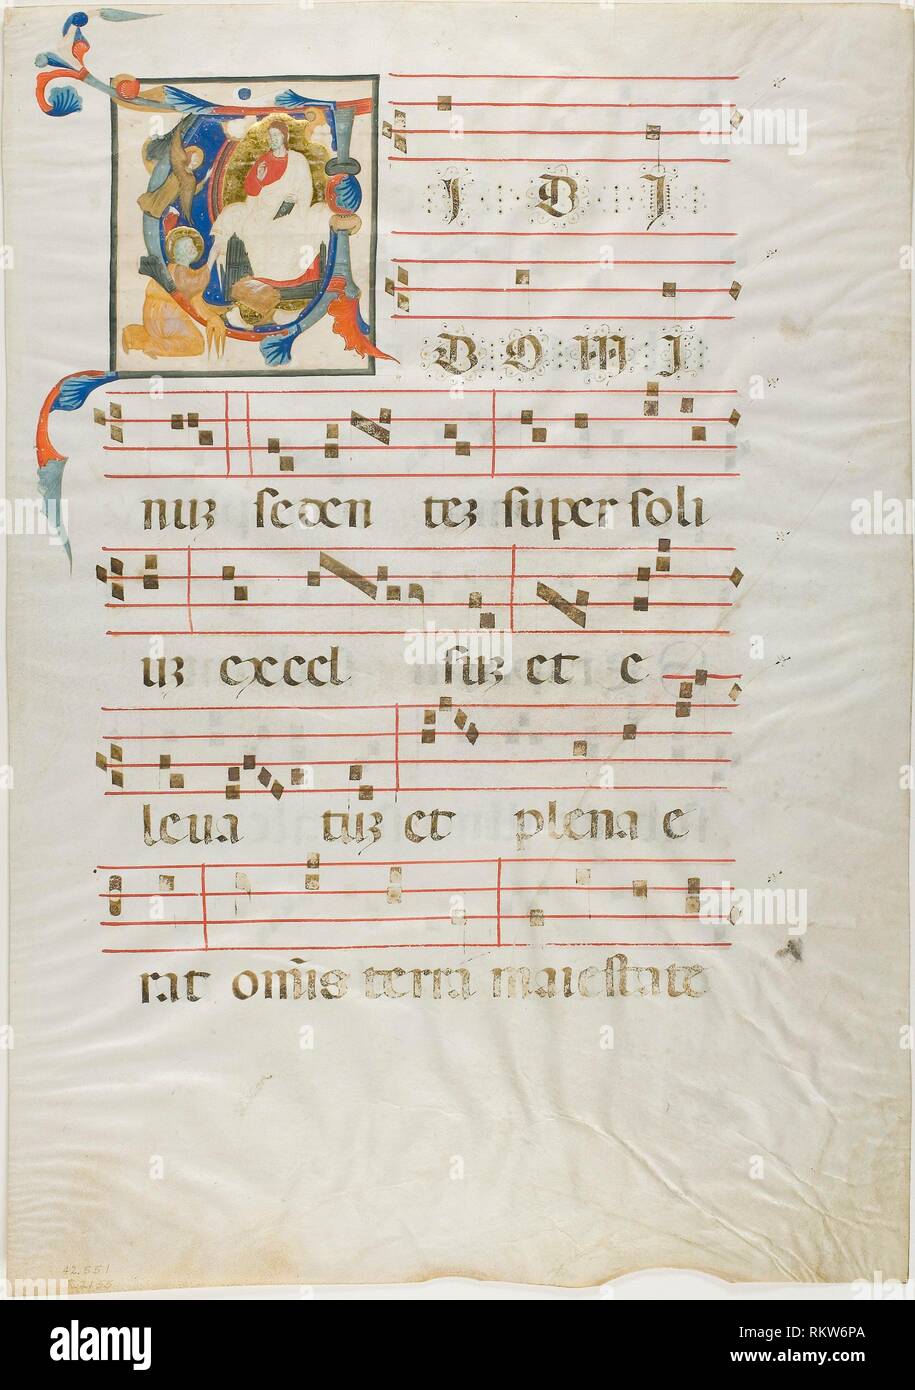 V IDI
DOMI
nuz seden tez super soli
uz excel suz et e
leva tuz et plena e
rat omīs terra maiestate
42.551
alamy
Image ID: RKW6PA
www.alamy.com